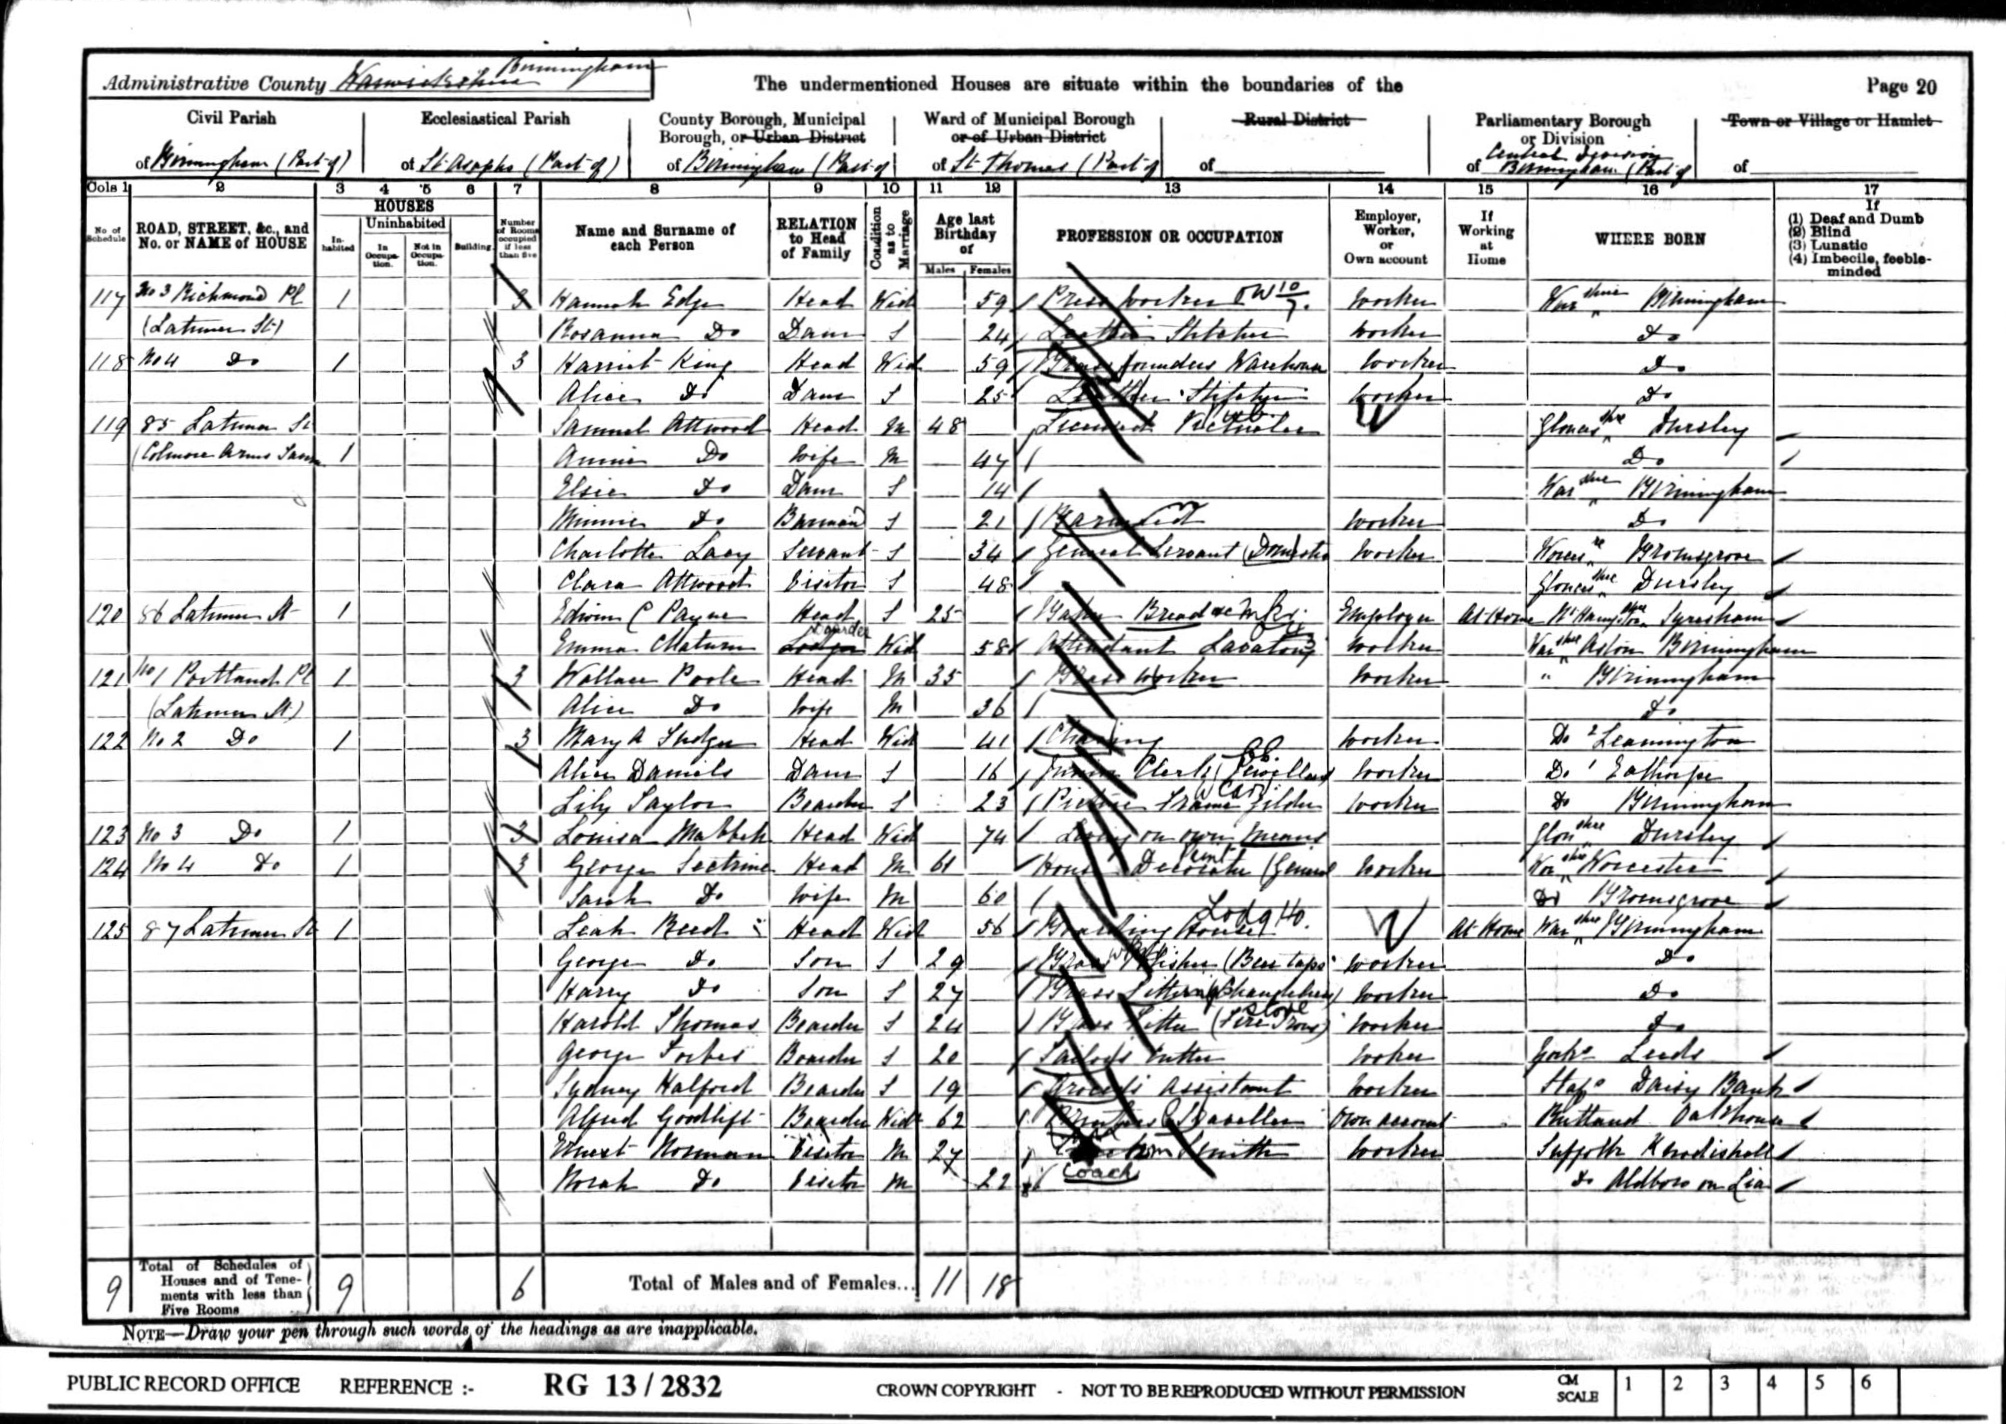 Administrative County Warwickshire Birmingham
The undermentioned Houses are situate within the boundaries of the
Page 20
Civil Parish
of Birmingham (Part of)
Ecclesiastical Parish
of St Asaphs (Part of)
County Borough, Municipal
Borough, or Urban District
of Birmingham (Part of
Ward of Municipal Borough
or of Urban District
of St Thomas (Part of
Rural District
of
Parliamentary Borough
or Division
Central Division
of Birmingham (Part of
Town or Village or Hamlet
of
Cols 1 2 3 4 5 6 7 8 9 10 11 12 13 14 15 16 17
No of Schedule
ROAD, STREET, &c., and No. or NAME of HOUSE
HOUSES
Inhabited
Uninhabited
In Occupation.
Not in Occupation.
Building
Number of Rooms occupied if less than five
Name and Surname of each Person
RELATION to Head of Family
Condition as to Marriage
Age last Birthday of
Males Females
PROFESSION OR OCCUPATION
Employer, Worker, or Own account
If Working at Home
WHERE BORN
If
(1) Deaf and Dumb
(2) Blind
(3) Lunatic
(4) Imbecile, feeble-minded
117 No 3 Richmond Pl 1 3 Hannah Edge Head Wid 59 Press Worker Worker Warshire Birmingham
(Latimer St) Rosanna Do Daur S 24 Leather Stitcher Worker Do
118 No 4 Do 1 3 Harriet King Head Wid 59 Brass founders Warehouse Worker Do
Alice Do Daur S 25 Leather Stitcher Worker Do
119 85 Latimer St Samuel Attwood Head M 48 Licensed Victualler Pub. W Gloucesshre Dursley
(Colmore Arms Tavern 1 Annie Do Wife M 47 Do
Elsie Do Daur S 14 Warshire Birmingham
Minnie Do Barmaid S 21 Barmaid Worker Do
Charlotte Lacy Servant S 34 General Servant (Domestic Worker Worcesre Bromsgrove
Clara Attwood Visitor S 48 Gloucesshre Dursley
120 86 Latimer St 1 Edwin C Payne Head S 25 Baker Bread &c Mkr. Employer At Home Nthamptonshre Syresham
Emma Maturin Lodger Boarder Wid 58 Attendant Lavatory Worker Warshre Aston Birmingham
121 No 1 Portland Pl 1 3 Wallace Poole Head M 35 Brass Worker Worker " Birmingham
(Latimer St) Alice Do Wife M 36 Do
122 No 2 Do 1 3 Mary A Head Wid 41 Charing Worker Do Leamington
Alice Daniels Daur S 16 Junior Clerk (Jewellers Worker Do Eathorpe
Lily Taylor Boarder S 23 Picture Frame Gilder Worker Do Birmingham
123 No 3 Do 1 3 Louisa Head Wid 74 Living on own means Glosshre Dursley
124 No 4 Do 1 3 George Head M 61 House Decorator (General Paint Worker Worshre Worcester
Sarah Do Wife M 60 Do Bromsgrove
125 87 Latimer St 1 Leah Reed Head Wid 56 Boarding House Lodg Ho. W At Home Warshre Birmingham
George Do Son S 29 Brass Finisher (Beer taps Worker Do
Harry Do Son S 27 Brass Fitter (Chandeliers) Worker Do
Harold Thomas Boarder S 24 Brass Fitter (Fire Irons) Stove Worker Do
George Forbes Boarder S 20 Tailors Cutter Worker Yorks Leeds
Sydney Halford Boarder S 19 Grocers Assistant Worker Staffs Daisy Bank
Alfred Goodliff Boarder Wid 62 Traveller Own account Rutland Oakham
Ernest Norman Visitor M 27 Smith Worker Suffolk
Coach
Norah Do Visitor M 22 Do Aldboro on Sea
9 Total of Schedules of Houses and of Tenements with less than Five Rooms 9 6 Total of Males and of Females... 11 18
NOTE—Draw your pen through such words of the headings as are inapplicable.
PUBLIC RECORD OFFICE REFERENCE :- RG 13 / 2832 CROWN COPYRIGHT - NOT TO BE REPRODUCED WITHOUT PERMISSION CM SCALE 1 2 3 4 5 6